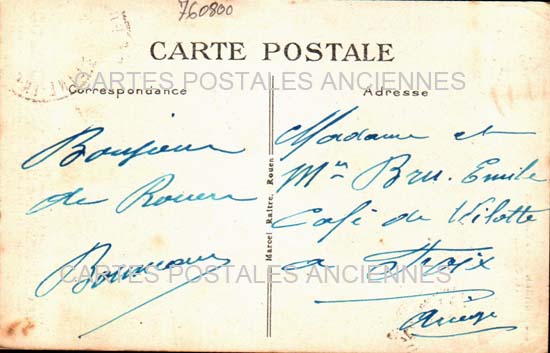 760800
CARTE POSTALE
CARTES POSTALES ANCIENNES
Correspondance
Adresse
Bonjour
de Rouen
Marcel Raître, Rouen
Madame et
Mr Bru. Emile
Café de Vilotte
a Foix
Ariège
CARTES POSTALES ANCIENNES